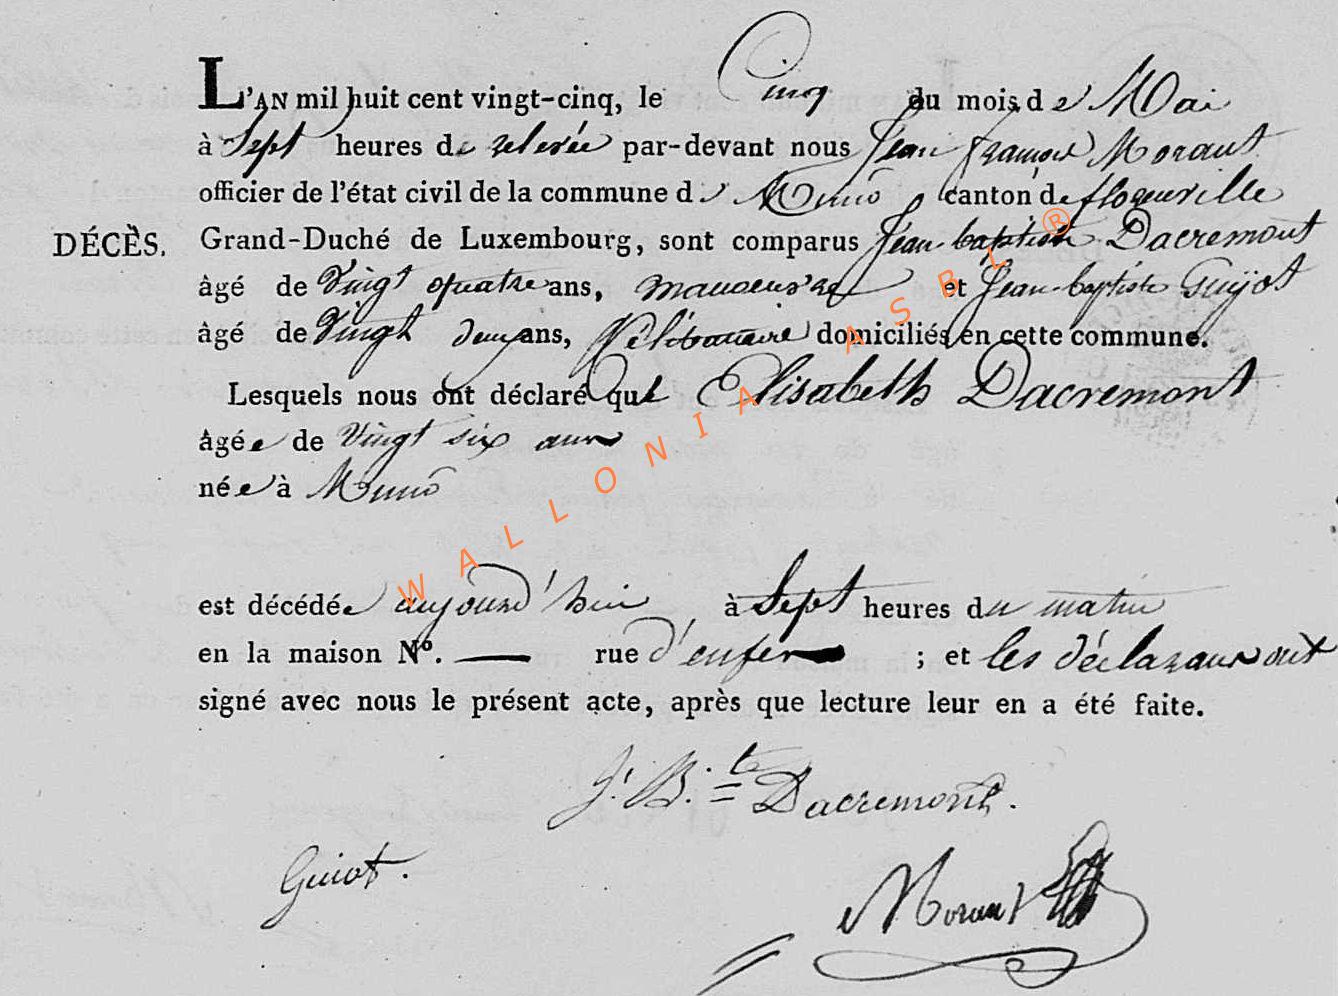 L'AN mil huit cent vingt-cinq, le Cinq du mois de Mai
à Sept heures de relevée par-devant nous Jean françois Moraut
officier de l'état civil de la commune de Muno canton de florenville
DÉCÈS. Grand-Duché de Luxembourg, sont comparus Jean baptiste Dacremont
âgé de Vingt quatre ans, manoeuvre et Jean-baptiste Guijot
âgé de Vingt deux ans, Célibataire domiciliés en cette commune.
Lesquels nous ont déclaré que Elisabeth Dacremont
âgée de Vingt six ans
née à Muno
est décédée aujourd'hui à Sept heures du matin
en la maison N°. — rue d'enfer ; et les déclarans ont
signé avec nous le présent acte, après que lecture leur en a été faite.
J. B.te = Dacremont.
Guiot.
Moraut
WALLONIA ASBL ®